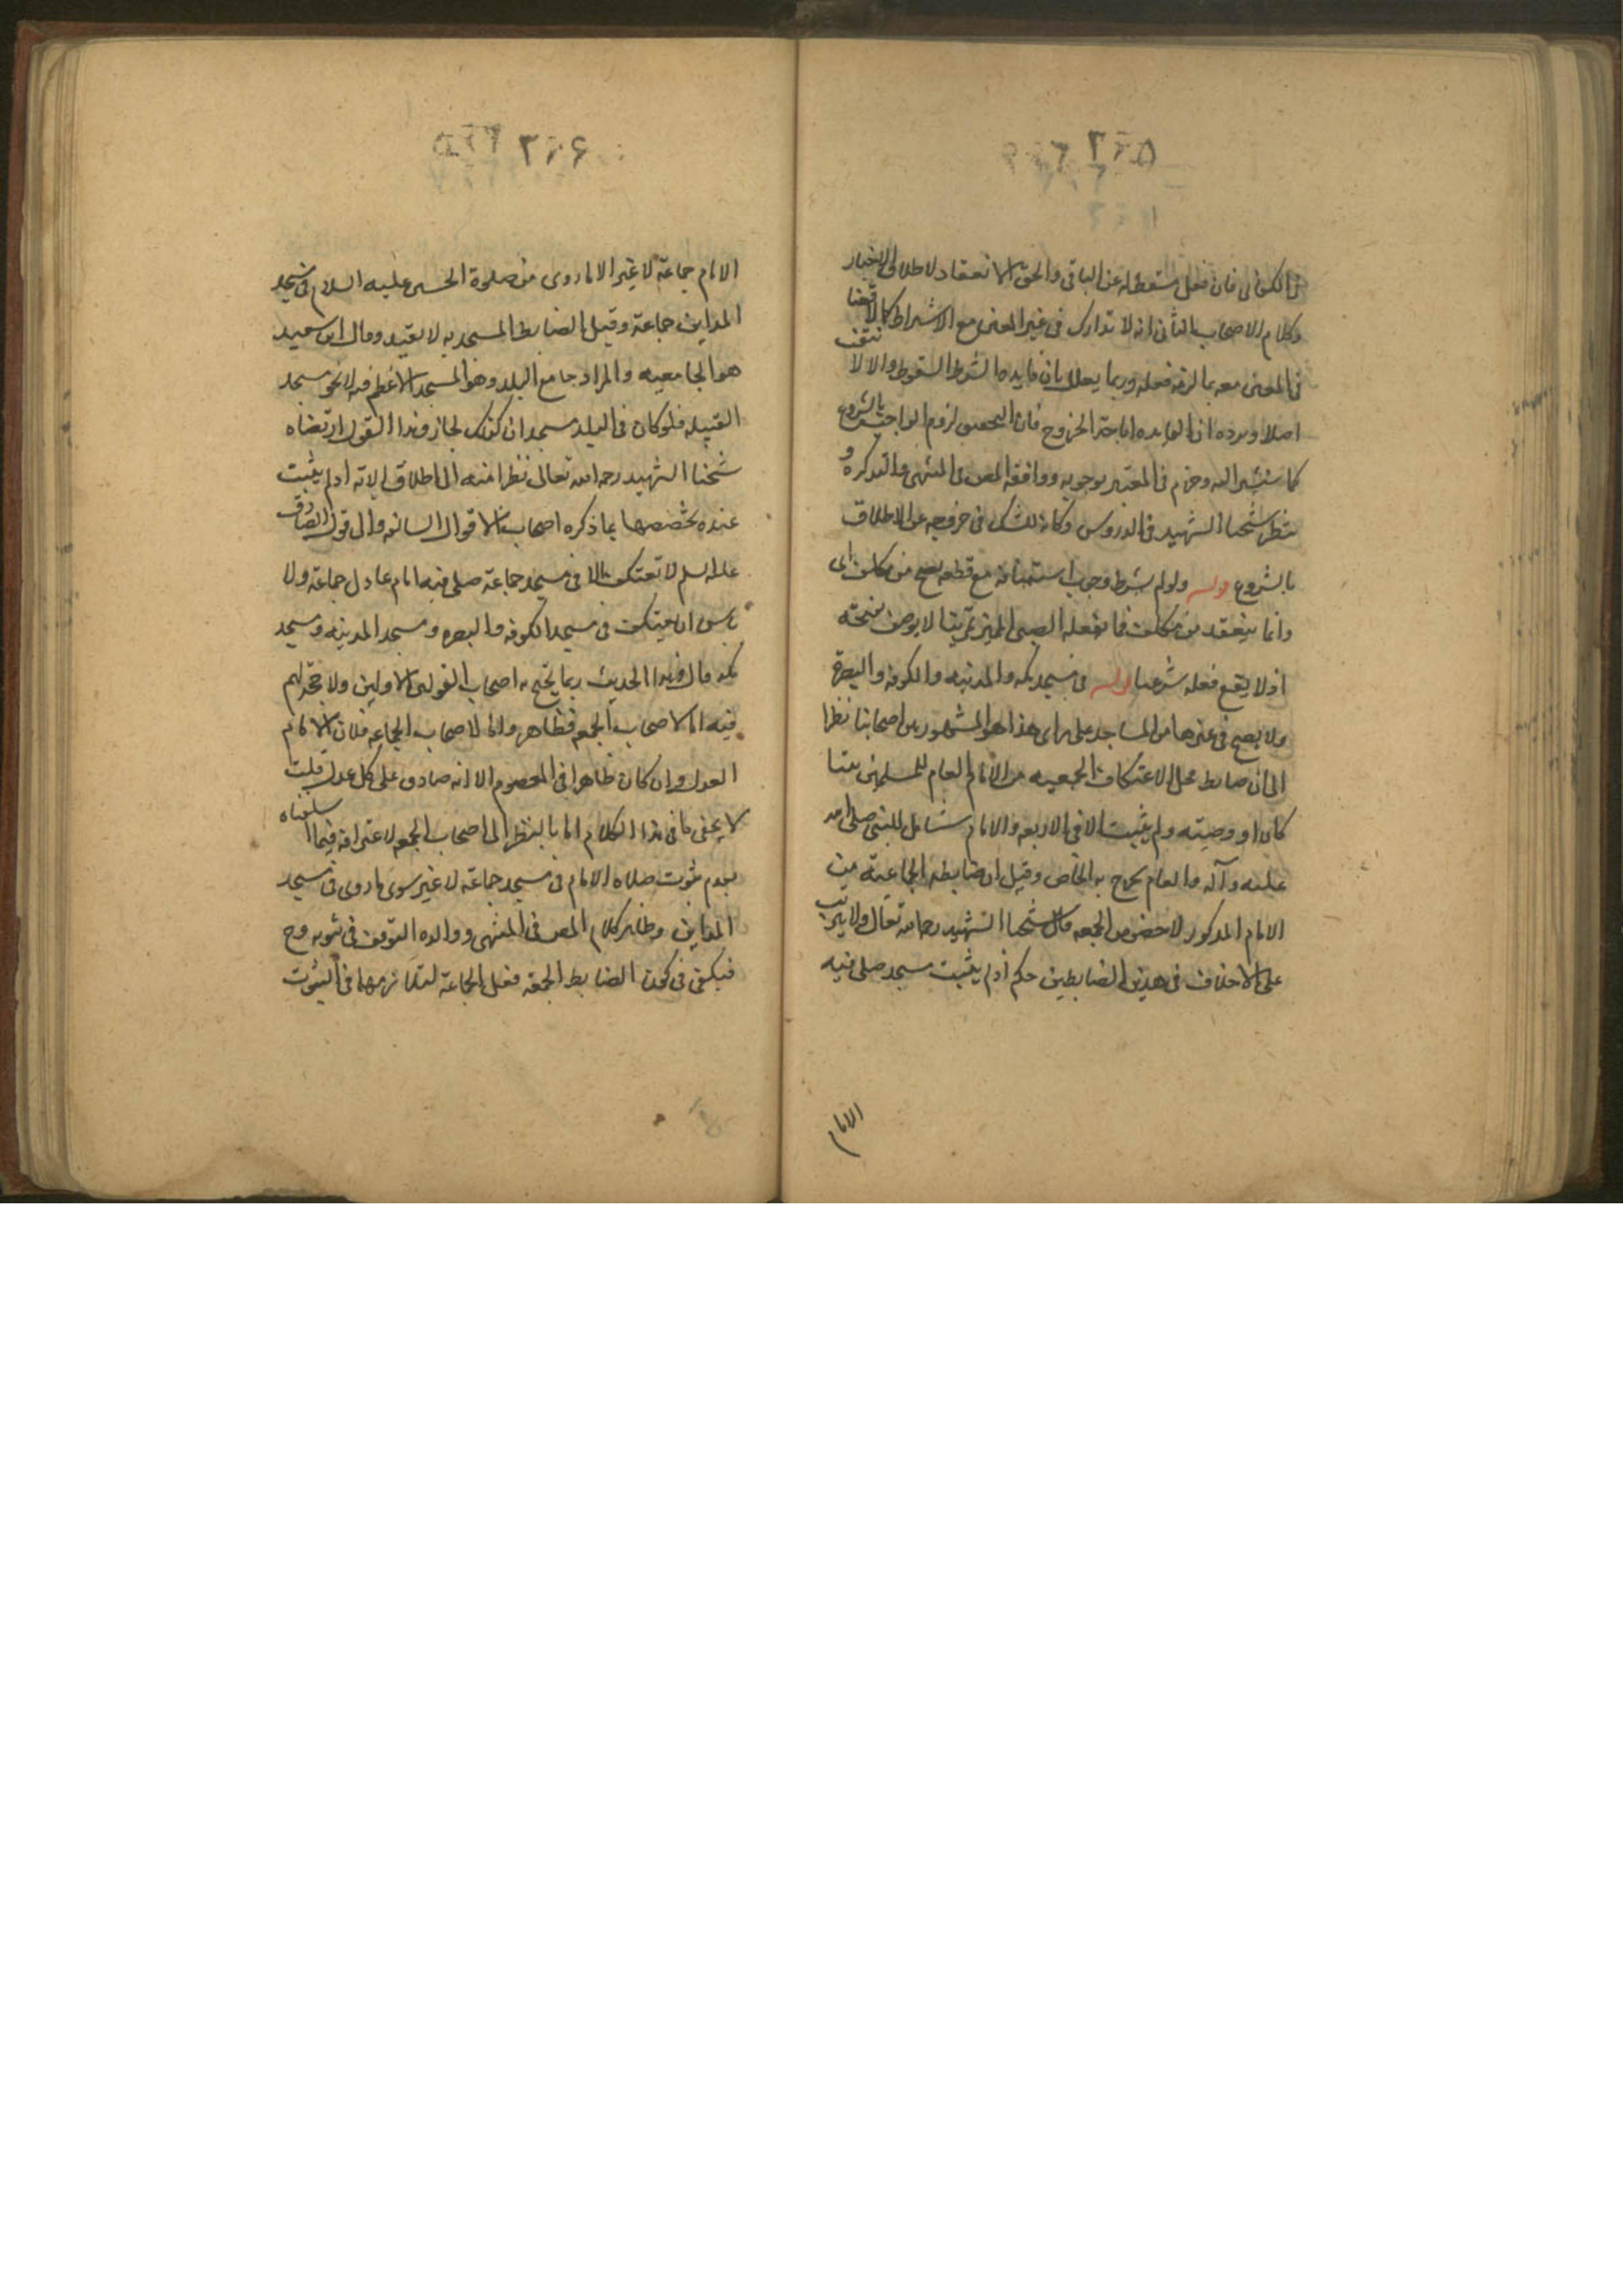 ۳۶۵
وكلام الاصحاب الثاني انه لا تدارك في غير المعين مع الاشتراط
في المعين معه وربما يعلل بان فايده الشرط السقوط والا لا
اصلا ويرده ان الفايده اباحة الخروج فان لزوم الواجب بالشروع
كما سنشير اليه وجزم في المعتبر بوجوبه ووافقه المص في المنتهى والتذكره و
شيخنا الشهيد في الدروس وكانه للشك في خروجه عن الاطلاق
بالشروع قوله ولو لم يشترط وجب استينافه مع قطعه يصح من مكلف اى
وانما ينعقد من مكلف فما يفعله الصبى المميز تمرينا لا يوصف بصحته
اذ لا يقع فعله شرعيا قوله في مسجد مكه والمدينه والكوفه والبصرة
ولا يصح في غيرها من المساجد على راى هذا هو المشهور بين اصحابنا نظرا
الى ان ضابط محل الاعتكاف الجمعيه من الامام العام للمسلمين
كان او وصيته ولم يثبت الا في الاربعه والامام شامل للنبى صلى الله
عليه وآله والعام يخرج به الخاص وقيل ان ضابطه الجماعية من
الامام المذكور لا خصوص الجمعه قال شيخنا الشهيد رحمه الله تعالى ولا يترتب
على الاختلاف في هذين الضابطين حكم اذ لم يثبت مسجد صلى فيه
الامام
۳۶۶
الامام جماعة لا غير الا ما روى من صلوة الحسن عليه السلام في مسجد
المداين جماعة وقيل الضابط المسجديه لا بقيد وقال ابن سعيد
هو الجامعيه والمراد جامع البلد وهو المسجد الاعظم فيه لا نحو مسجد
القبيله فلو كان في البلد مسجدان كذلك لجاز وهذا القول ارتضاه
شيخنا الشهيد رحمه الله تعالى نظرا منه الى اطلاق الآية اذ لم يثبت
عنده تخصصها بما ذكره اصحاب الاقوال السابقه والى قول الصادق
عليه السلم لا تعتكف الا في مسجد جماعة صلى فيه امام عادل جماعة ولا
باس ان يعتكف في مسجد الكوفه والبصره ومسجد المدينه ومسجد
مكه قال وهذا الحديث ربما يحتج به اصحاب القولين الاولين ولا حجة لهم
فيه اما لاصحاب الجمعه فظاهر واما لاصحاب الجماعه فلان الامام
العدل وان كان ظاهرا في المعصوم الا انه صادق على كل عدل قلت
لا يخفى ما في هذا الكلام اما بالنظر الى اصحاب الجمعه لاعترافه فيما اسلفناه
بعدم ثبوت صلاه الامام في مسجد جماعة لا غير سوى ما روى في مسجد
المداين وظاهر كلام المص في المنتهى ووالده التوقف في ثبوته وح
فيكفى في كون الضابط الجمعه فعل الجماعة لتلازمهما في الثبوت